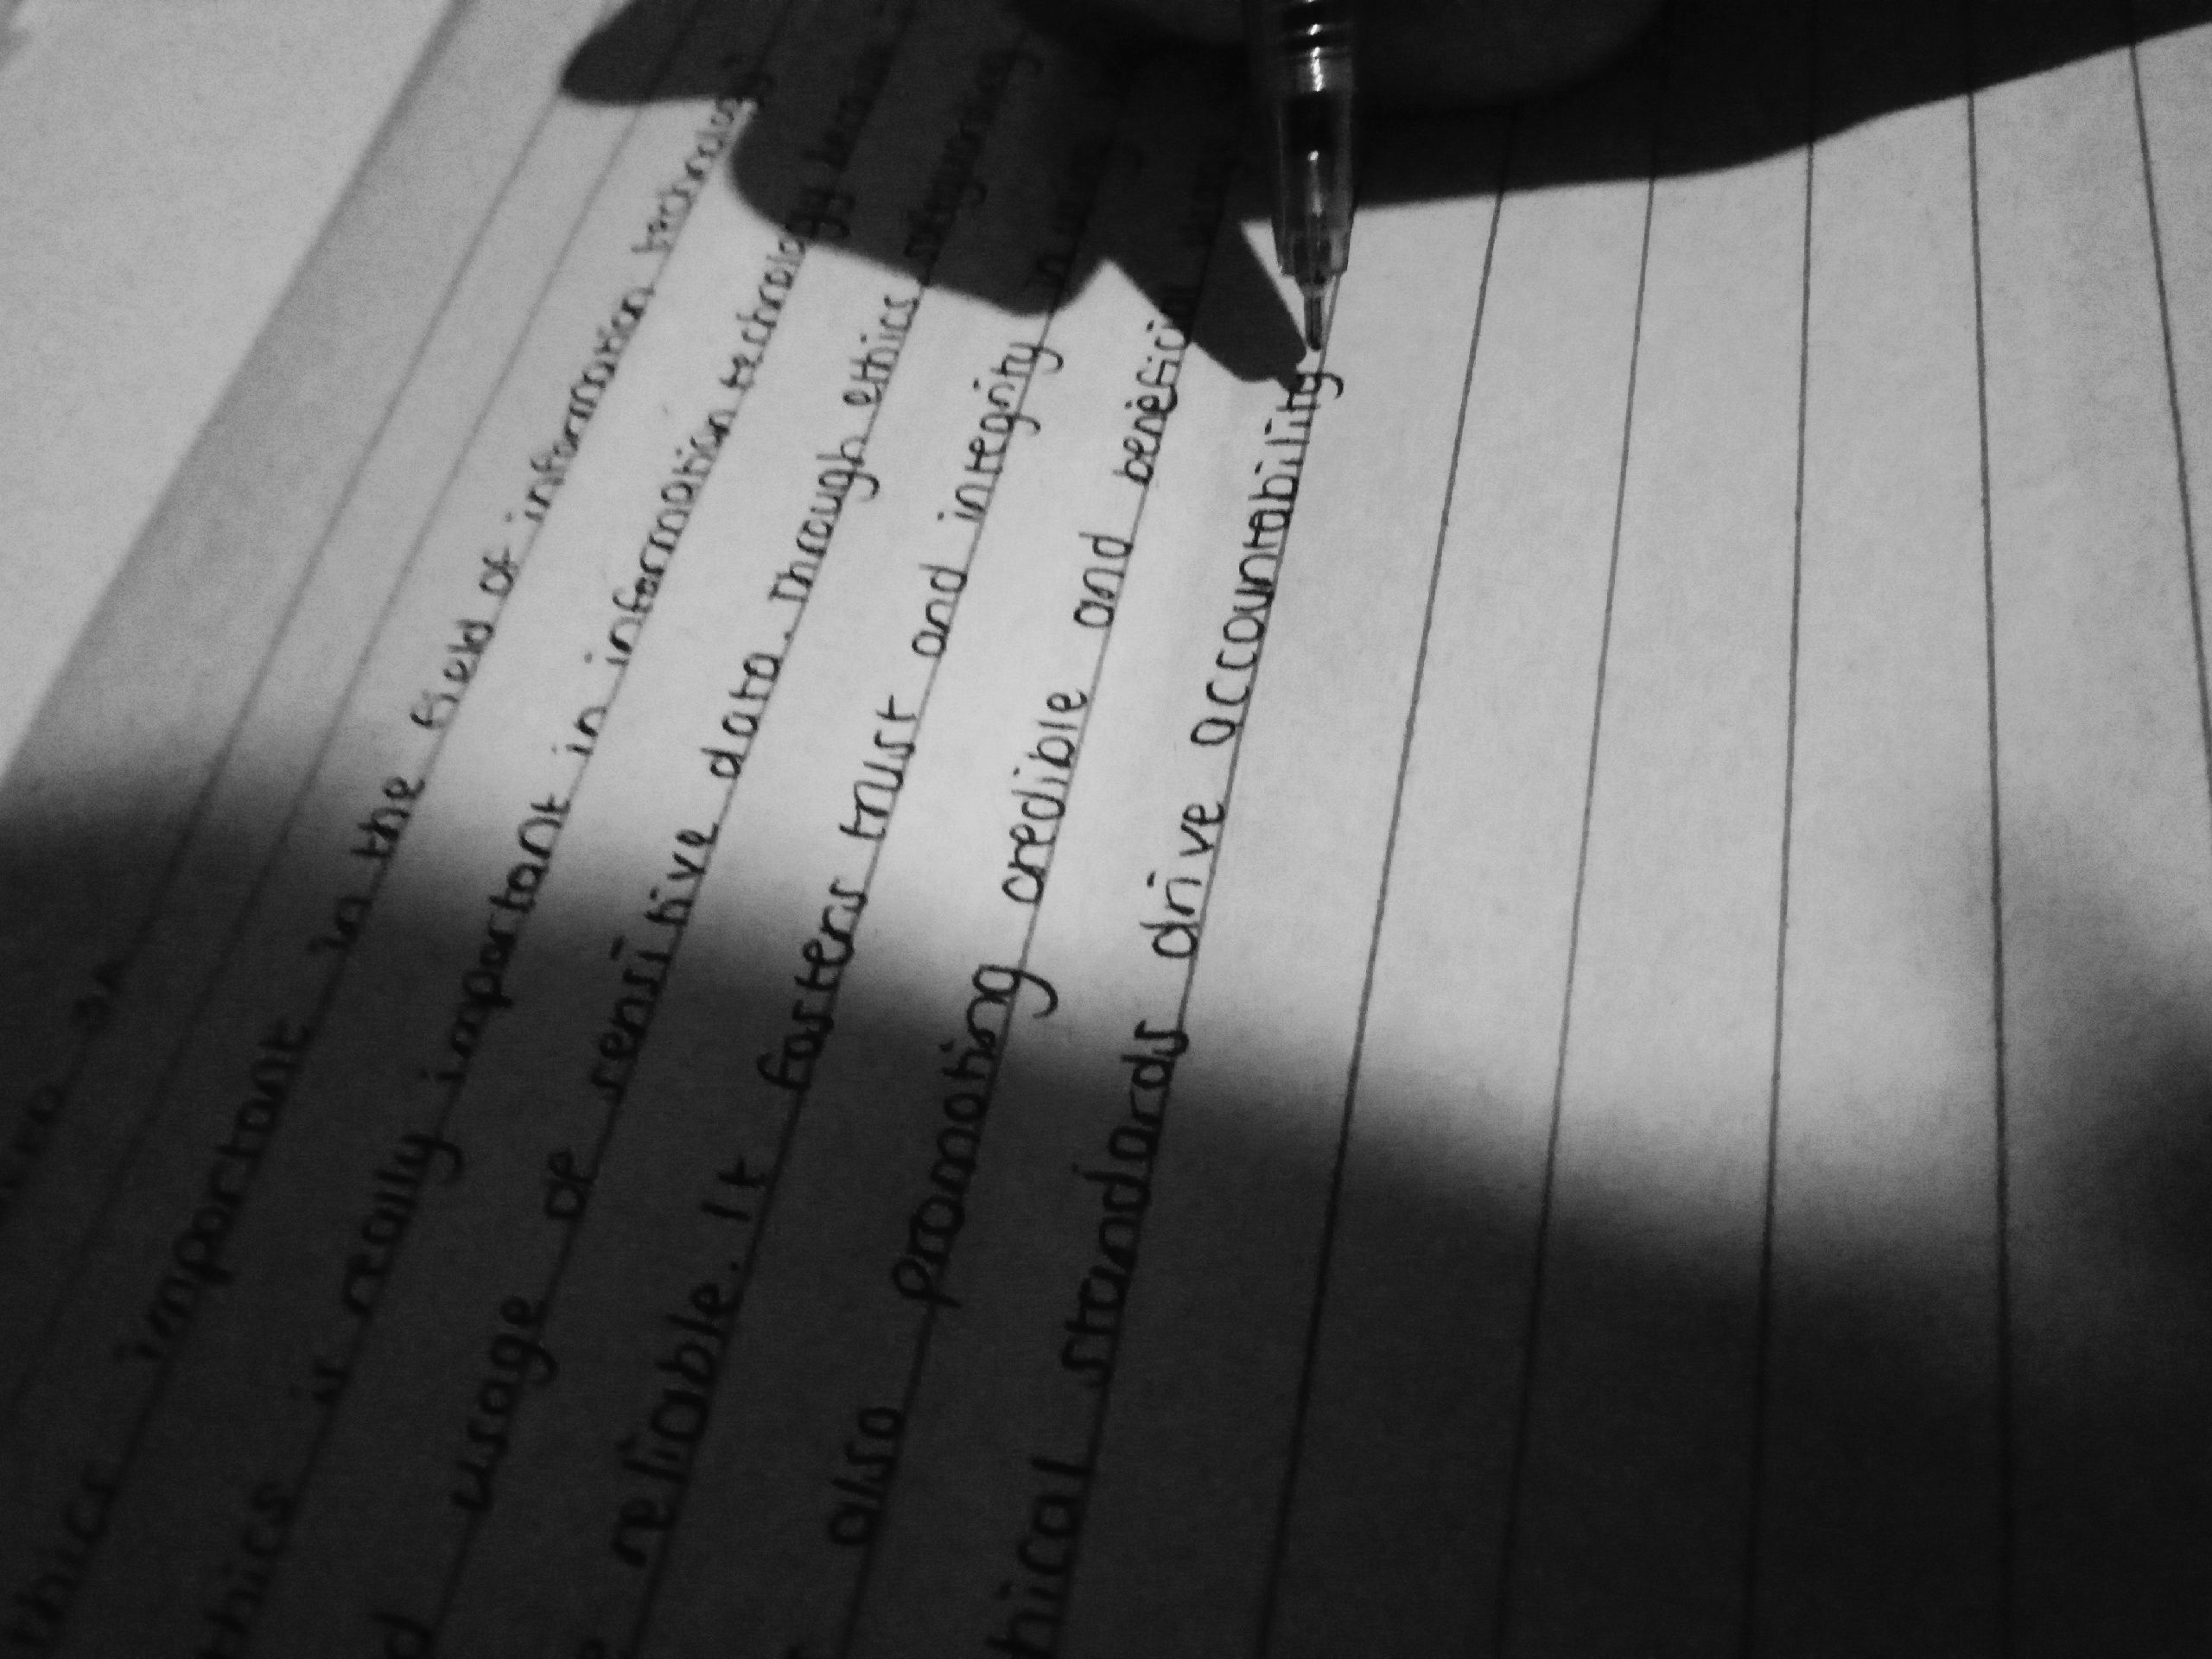 3A
thics important in the field of information technology?
thics is really important in information technology becau
d usage of sensitive data. Through ethics
reliable. It fosters trust and integrity in
also promoting credible and benefici
hical standards drive accountability